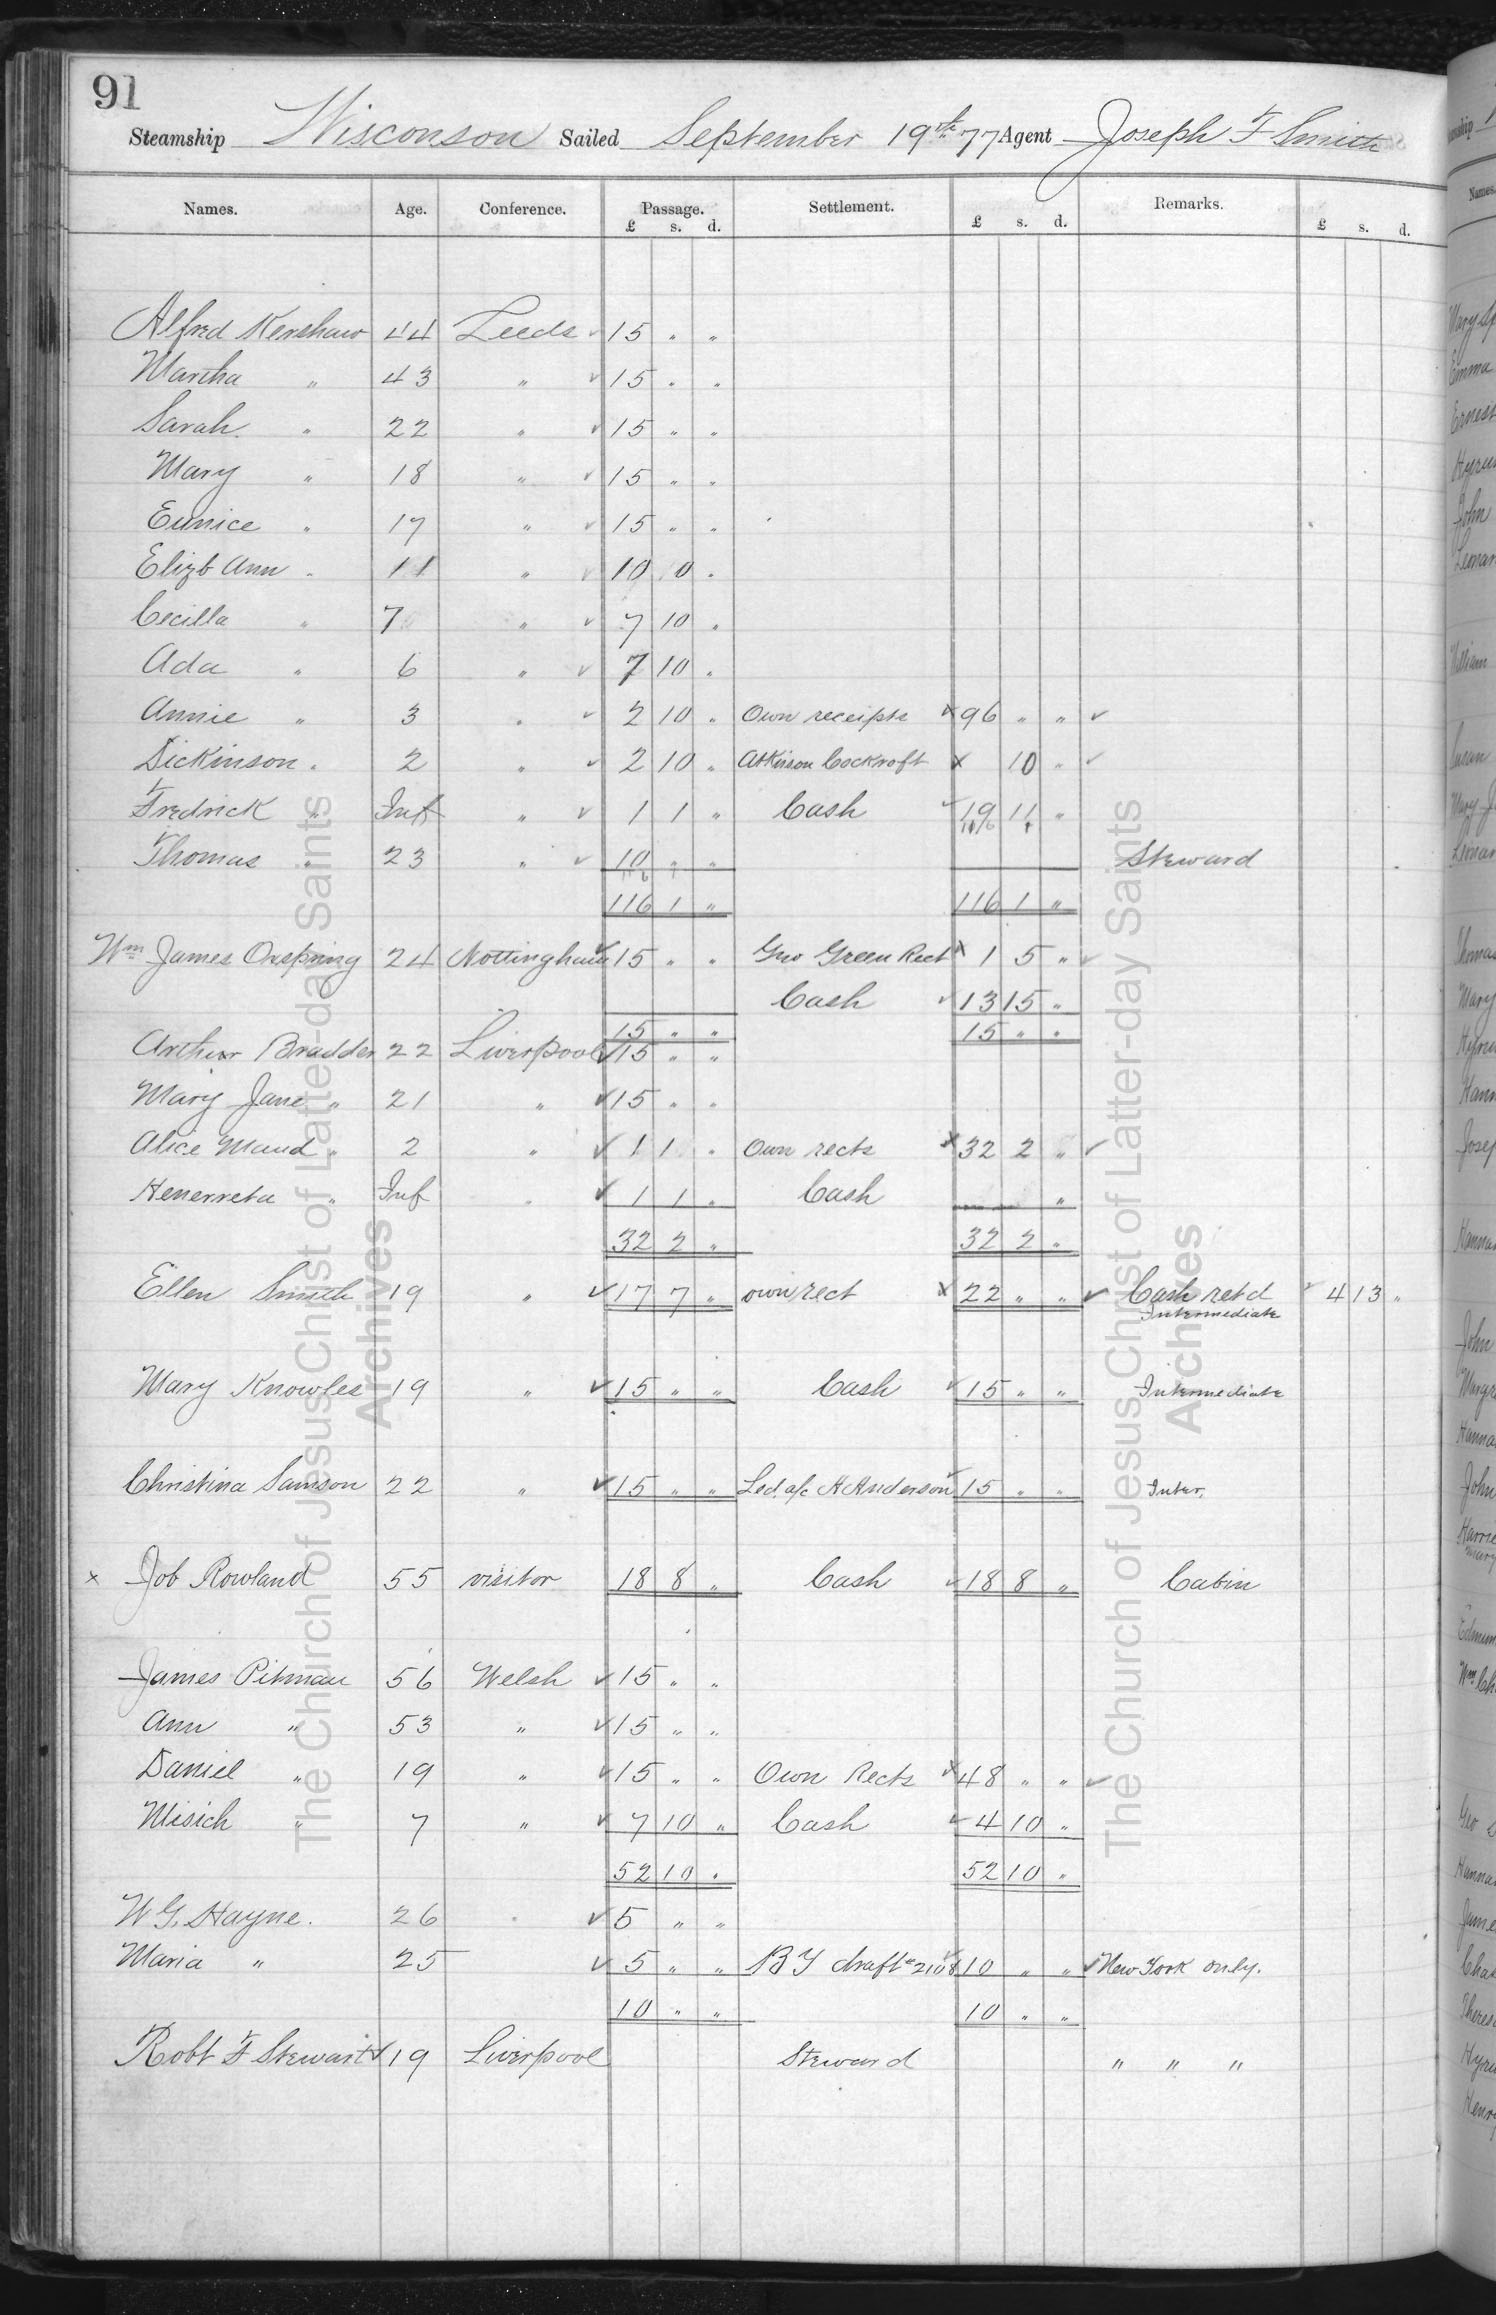 91
Steamship Wisconson Sailed September 19th 77 Agent Joseph F Smith
Names. Age. Conference. Passage. £ s. d. Settlement. £ s. d. Remarks. £ s. d.
Alfred Kershaw 44 Leeds ✓ 15 " "
Martha " 43 " ✓ 15 " "
Sarah " 22 " ✓ 15 " "
Mary " 18 " ✓ 15 " "
Eunice " 17 " ✓ 15 " "
Elizb Ann " 11 " ✓ 10 0 "
Cecilla " 7 " ✓ 7 10 "
Ada " 6 " ✓ 7 10 "
Annie " 3 " ✓ 2 10 " Own receipts x 96 " " ✓
Dickinson " 2 " ✓ 2 10 " Atkinson Cockroft x 10 " ✓
Fredrick " Inf " ✓ 1 1 " Cash ✓ 19 11 "
Thomas " 23 " ✓ 10 " " Steward
116 1 " 116 1 "
Wm James Orspring 24 Nottingham ✓ 15 " " Geo Green Rect x 1 5 " ✓
Cash ✓ 13 15 "
15 " " 15 " "
Arthur Bradder 22 Liverpool ✓ 15 " "
Mary Jane " 21 " ✓ 15 " "
Alice Maud " 2 " ✓ 1 1 " Own rects x 32 2 " ✓
Henerreta " Inf " ✓ 1 1 " Cash "
32 2 " 32 2 "
Ellen Smith 19 " ✓ 17 7 " own rect x 22 " " ✓ Cash retd ✓ 4 13 "
Intermediate
Mary Knowles 19 " ✓ 15 " " Cash ✓ 15 " " Intermediate
Christina Samson 22 " ✓ 15 " " Led. a/c A Anderson ✓ 15 " " Inter,
x Job Rowland 55 visitor 18 8 " Cash ✓ 18 8 " Cabin
James Pitman 56 Welsh ✓ 15 " "
Ann " 53 " ✓ 15 " "
Daniel " 19 " ✓ 15 " " Own Rects x 48 " " ✓
Misich " 7 " ✓ 7 10 " Cash ✓ 4 10 "
52 10 " 52 10 "
W G. Hayne. 26 " ✓ 5 " "
Maria " 25 ✓ 5 " " B Y draft 2108 ✓ 10 " " ✓ New York only.
10 " " 10 " "
Robt F Stewart ✓ 19 Liverpool Steward " " "
The Church of Jesus Christ of Latter-day Saints
Archives
The Church of Jesus Christ of Latter-day Saints
Archives
Names.
Emma
Ernest
John
William
Susan
Mary
Hannah
John
John